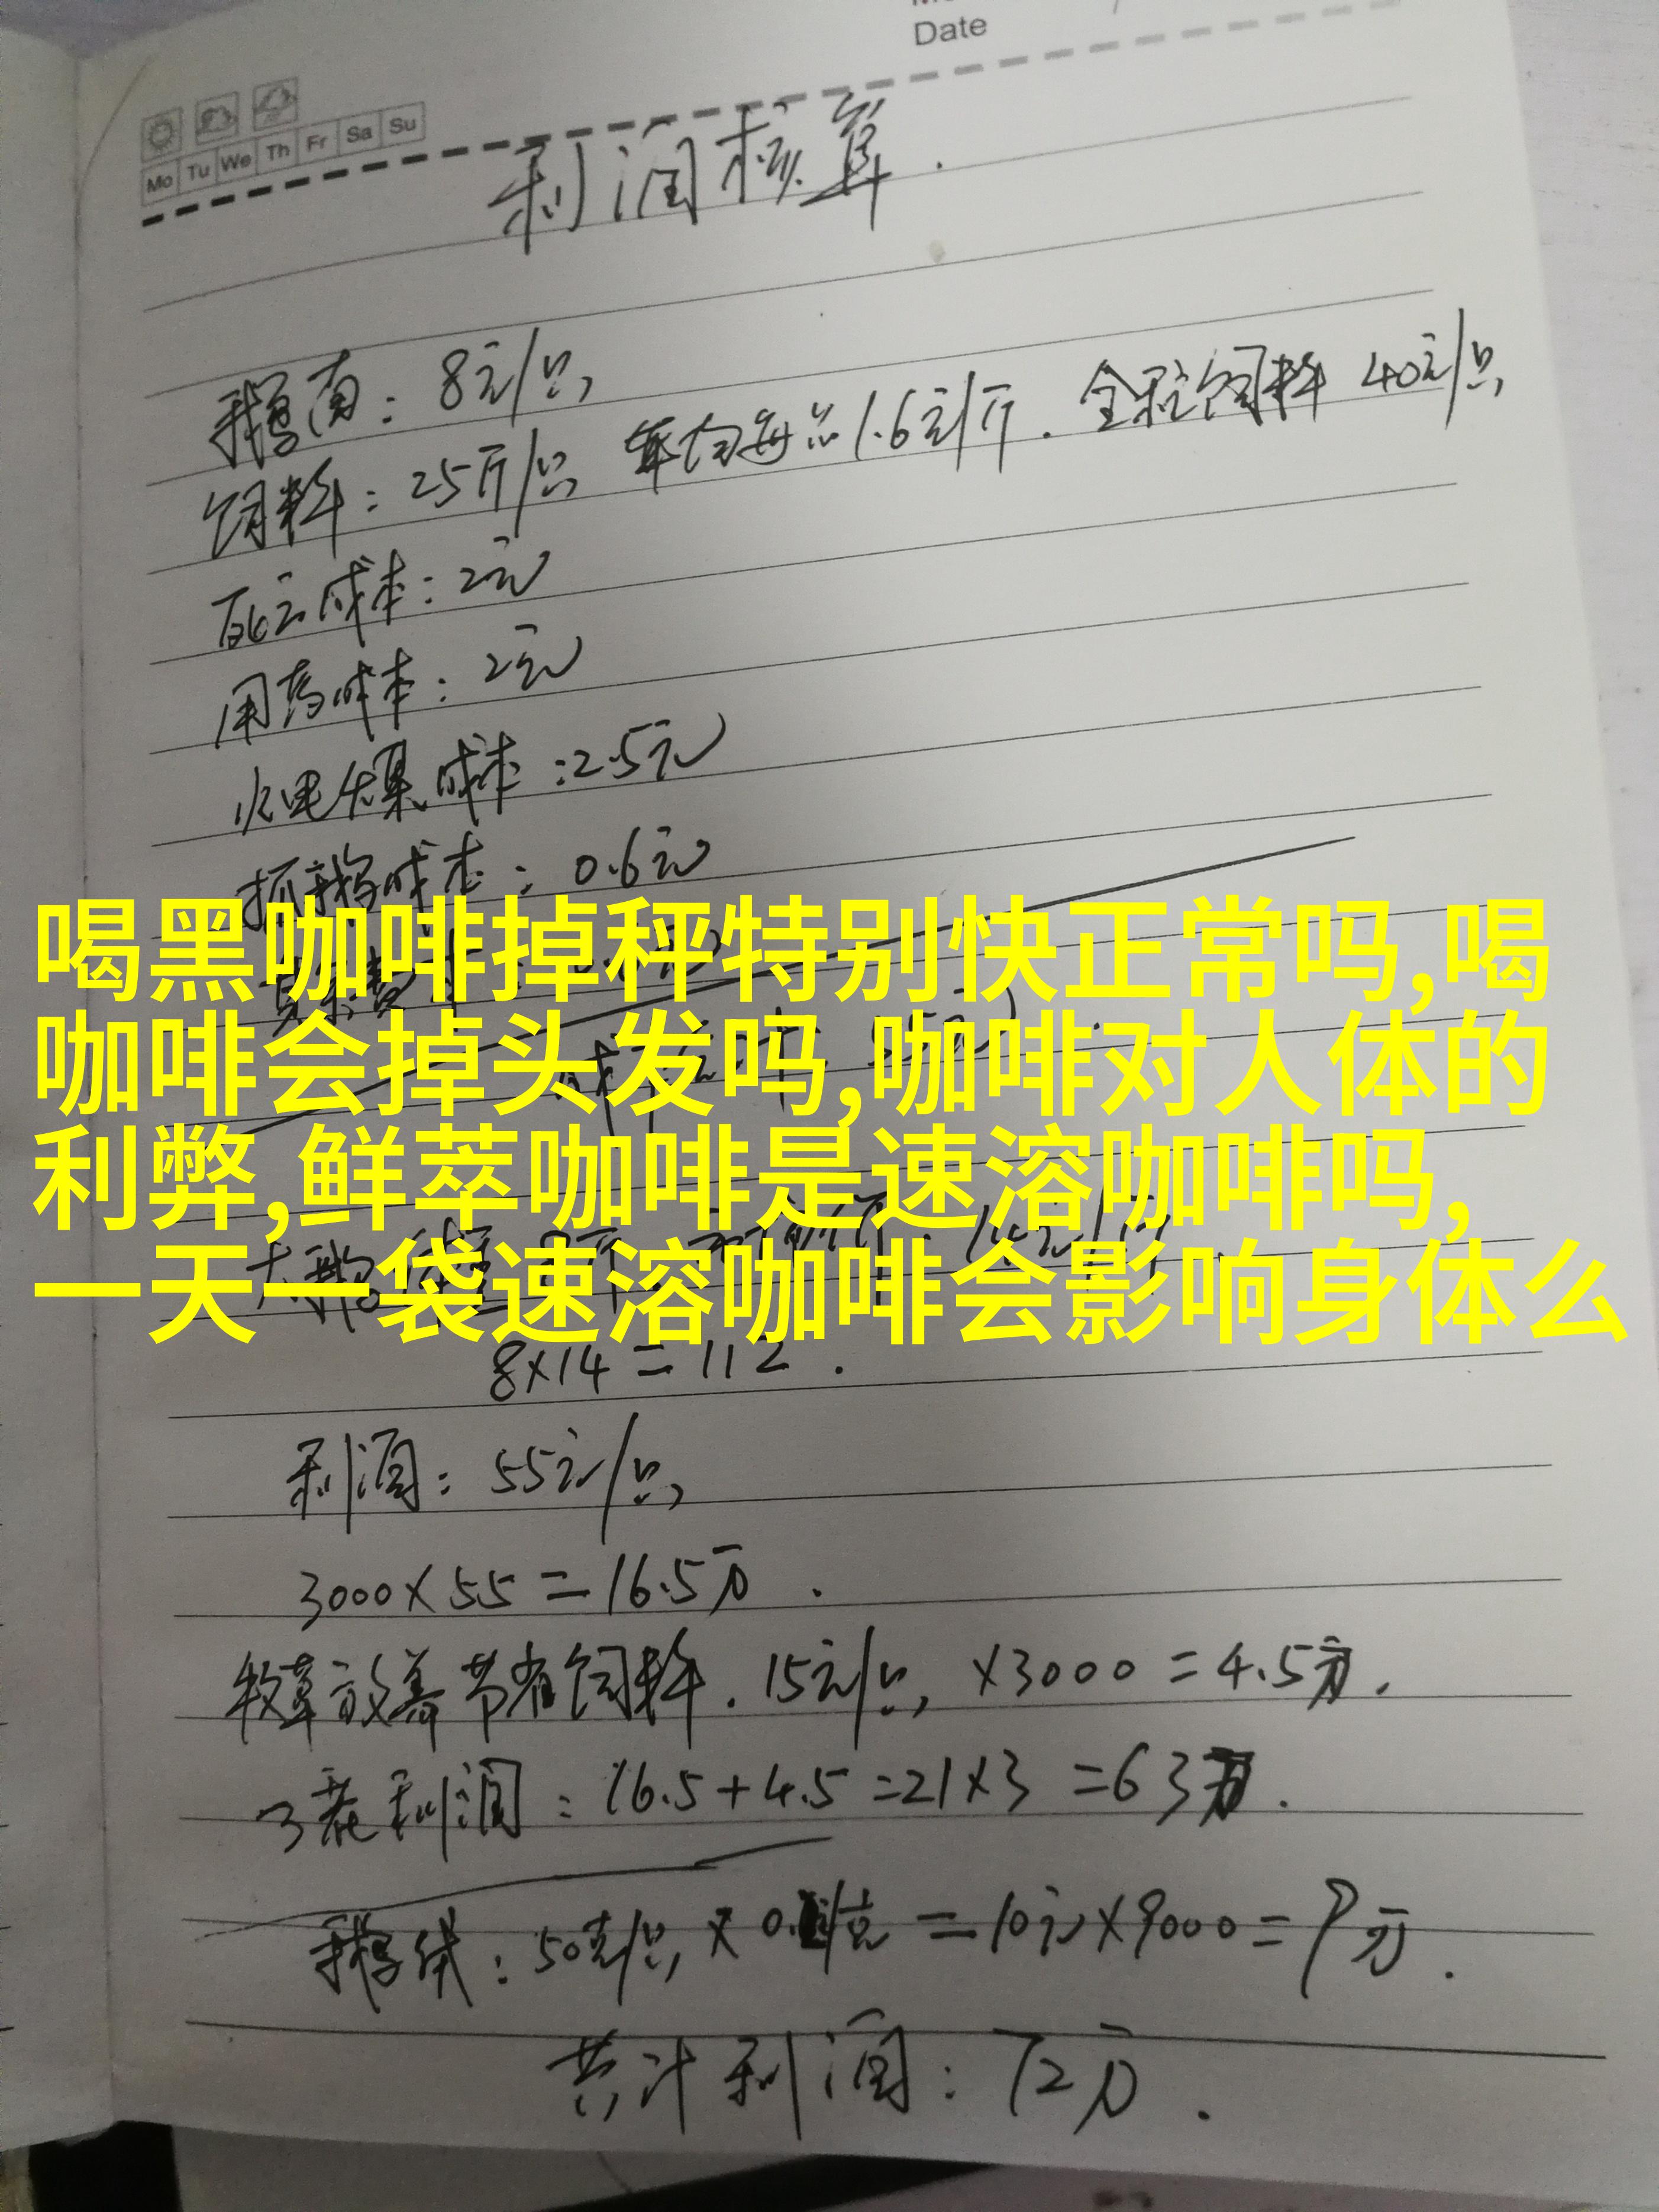 Date
Mo Tu We Th Fr Sa Su
利润核算.
鹅苗: 8元/只
饲料: 25斤/只 平均每斤1.6元/斤. 全程饲料 40元/只
死亡成本: 2元
用药成本: 2元
水电煤成本: 2.5元
抓鹅成本: 0.6元
喝黑咖啡掉秤特别快正常吗,喝
咖啡会掉头发吗,咖啡对人体的
利弊,鲜萃咖啡是速溶咖啡吗,
一天一袋速溶咖啡会影响身体么
8×14=112.
利润: 55元/只
3000×55=16.5万.
牧草放养节省饲料. 15元/只 ×3000=4.5万.
3茬利润: 16.5+4.5=21×3=63万.
鹅绒: 50克/只 × =10元×9000=9万.
共计利润: 72万.